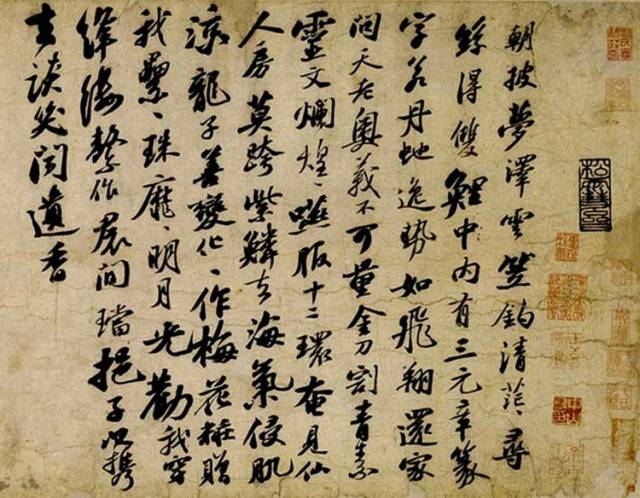 朝披夢澤雲笠釣清茫〻尋
絲得雙鯉中内有三元章篆
字若丹蛇逸勢如飛翔還家
問天老奧義不可量金刀割青素
靈文爛煌〻嚥服十二環奄見仙
人房莫跨紫鱗去海氣侵肌
涼龍子善變化〻作梅花粧贈
我纍〻珠靡〻明月光勸我穿
絳縷繫作裙間璫挹子以携
去談笑聞遺香